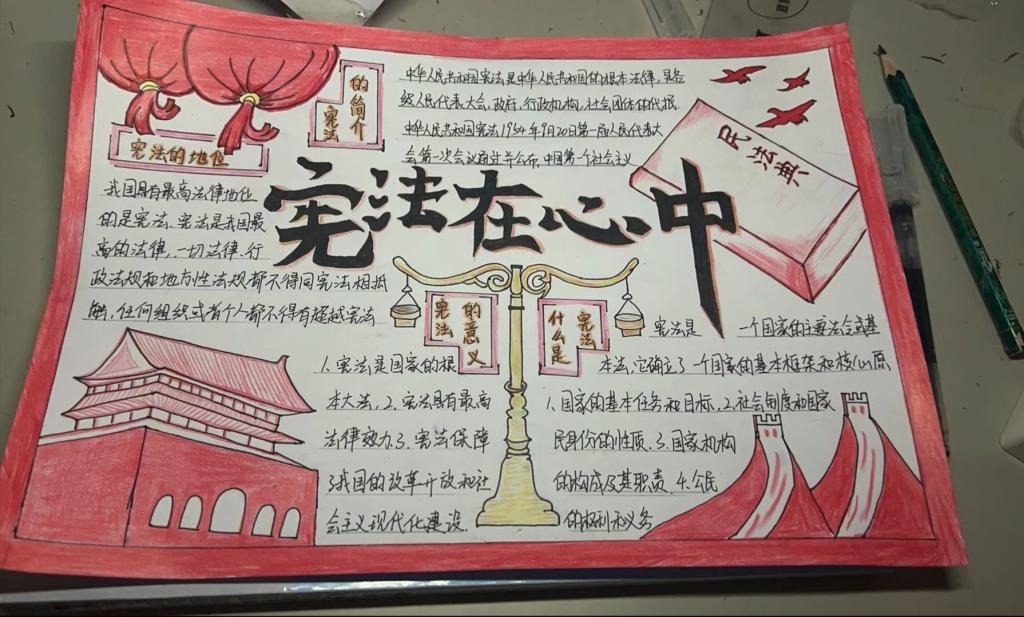 宪法的简介
中华人民共和国宪法是中华人民共和国的根本法律,是各
级人民代表大会,政府,行政机构,社会团体的代据.
中华人民共和国宪法1954年9月20日第一届人民代表大
会第一次会议通过并公布,中国第一个社会主义
民法典
宪法的地位
我国具有最高法律地位
的是宪法.宪法是我国最
高的法律,一切法律.行
政法规和地方性法规都不得同宪法相抵
触,任何组织或者个人都不得有超越宪法
宪法在心中
宪法的意义
1.宪法是国家的根
本大法,2.宪法具有最高
法律效力.3.宪法保障
了我国的改革开放和社
会主义现代化建设.
什么是宪法
宪法是 一个国家的主要法令或基
本法,它确立了一个国家的基本框架和核心原
1.国家的基本任务和目标,2.社会制度和国家
民身份的性质.3.国家机构
的构成及其职责.4.公民
的权利和义务